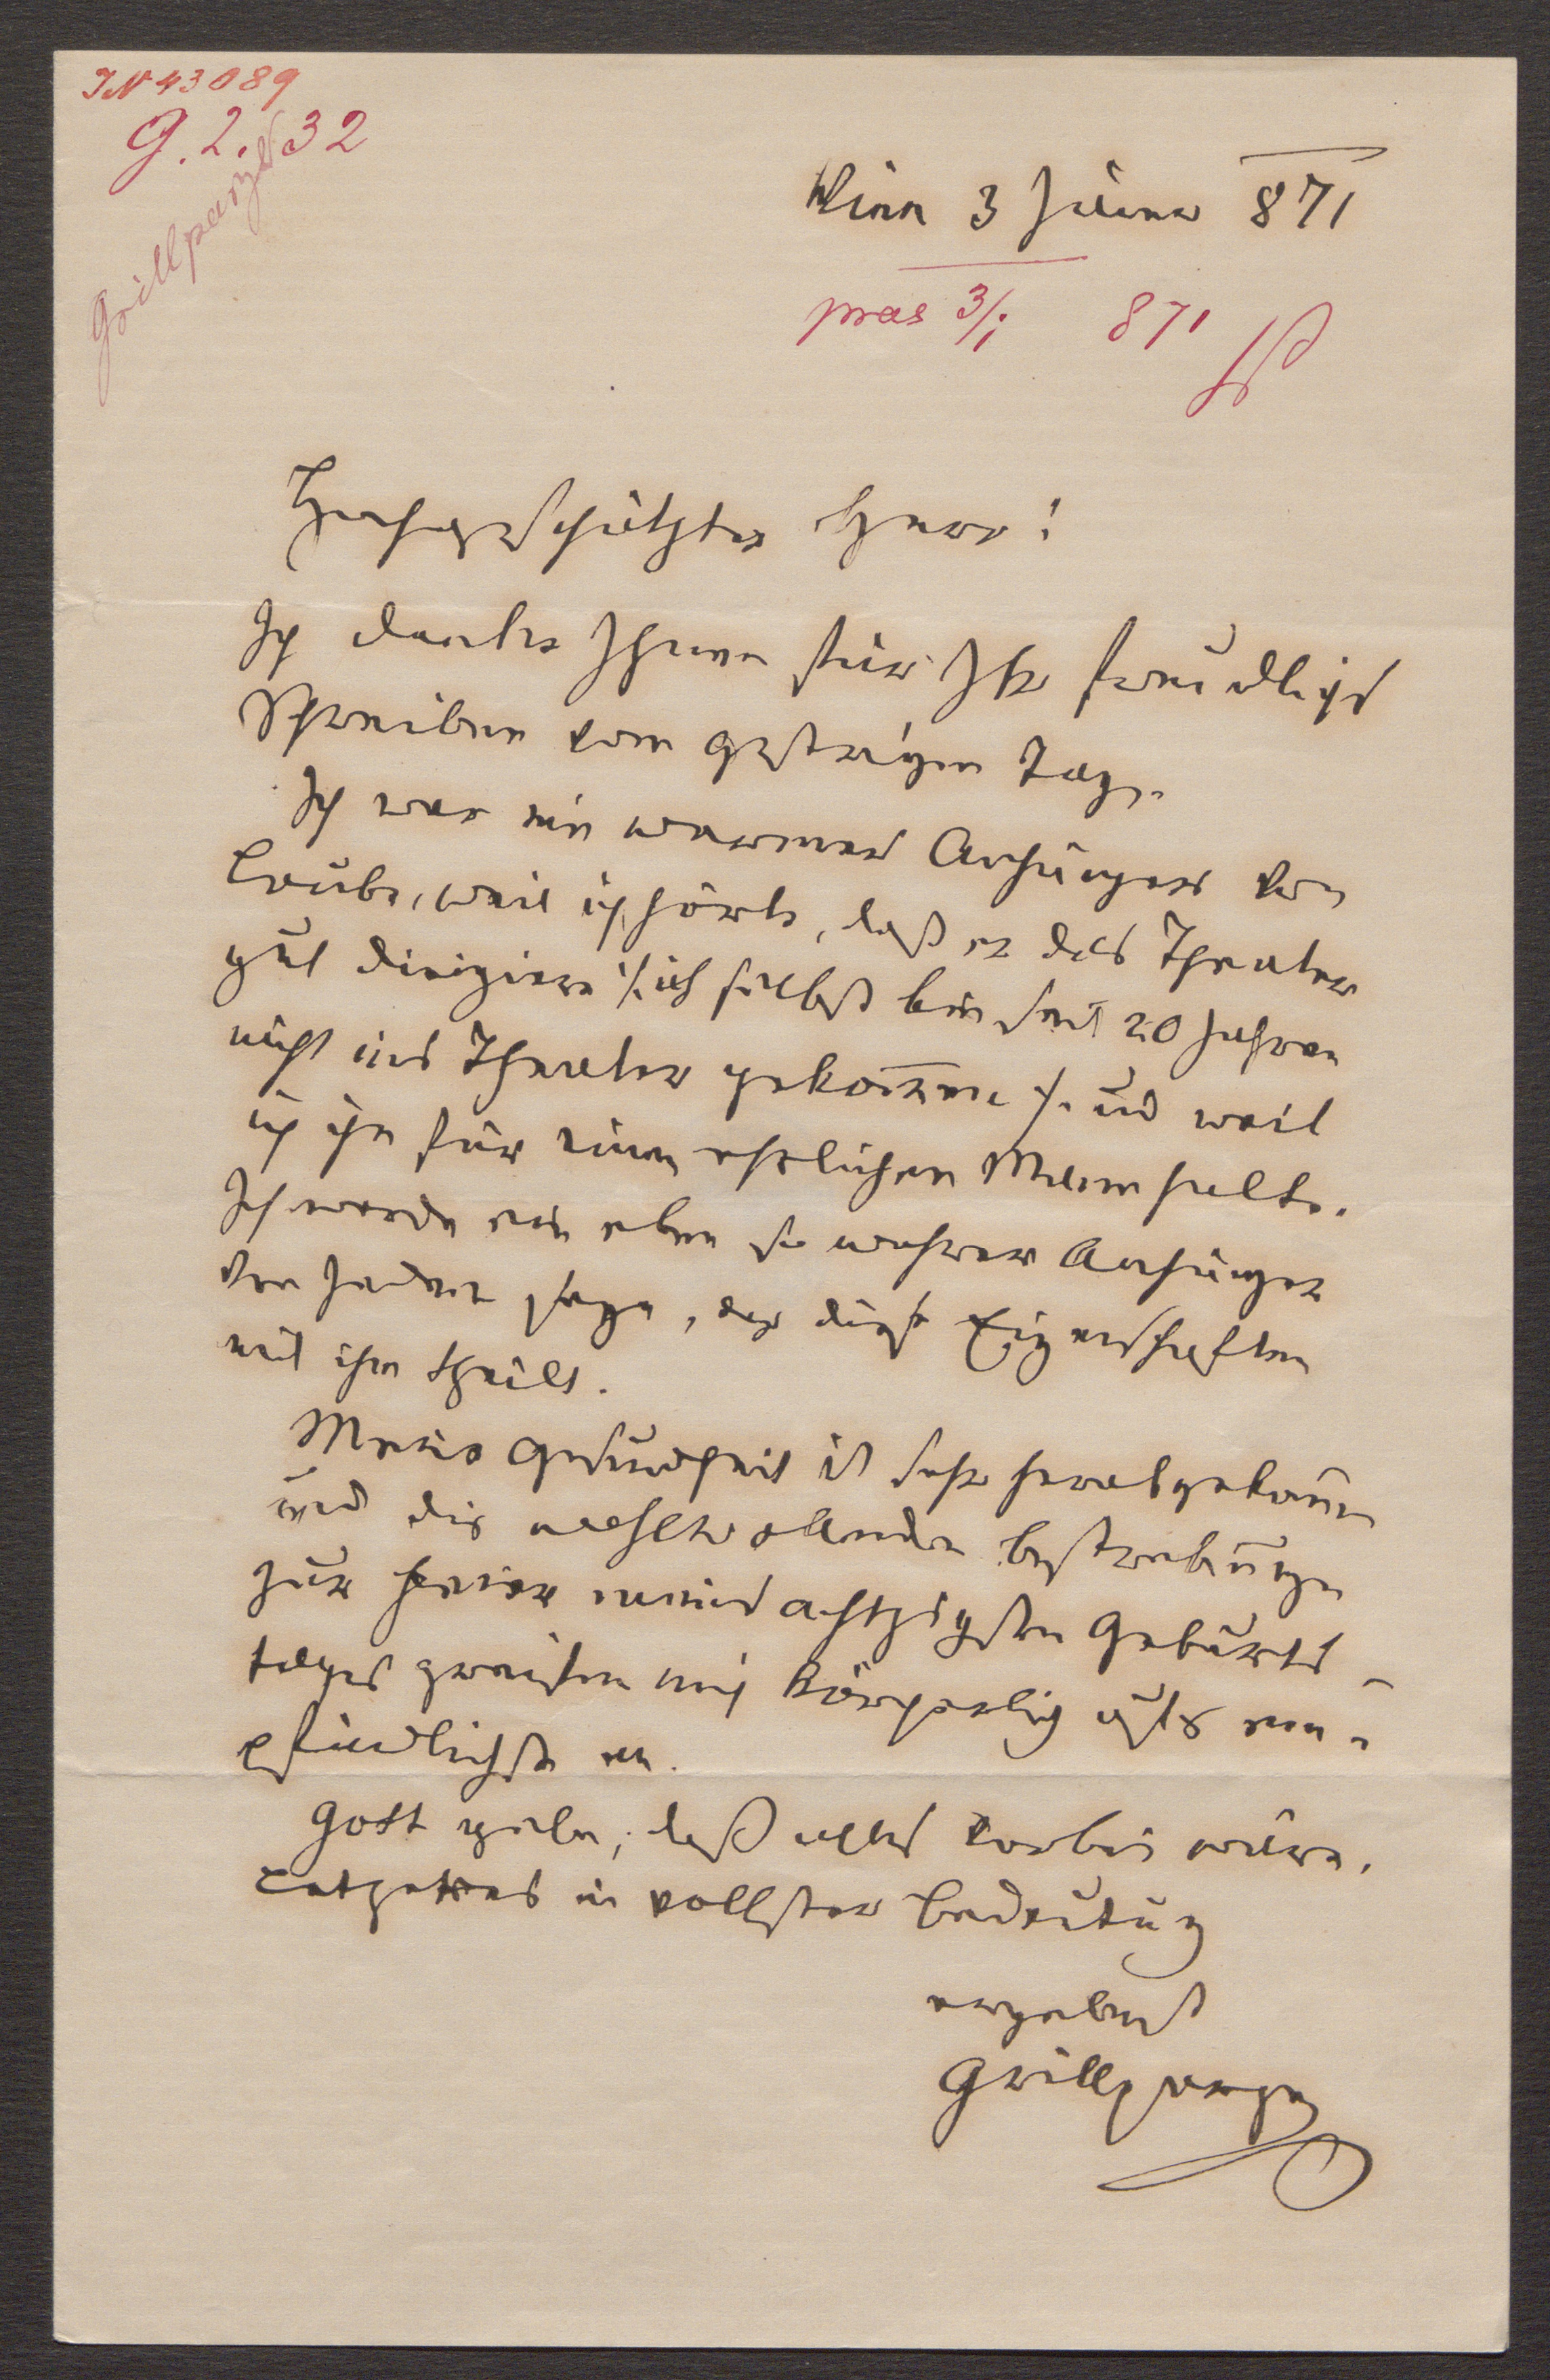 IN 43089
G. L. 32
Grillparzer
Wien 3 Jäner 871
pras 3/1 871
Hochgeschätzter Herr!
Ich danke Ihnen für Ihr freundliches
Schreiben vom gestrigen Tage.
Ich war ein warmer Anhänger von
Laube, weil ich hörte, daß er das Theater
gut dirigiere /: ich selbst bin seit 20 Jahren
nicht ins Theater gekommen :/ und weil
ich ihn für einen ehrlichen Mann halte.
Ich werde ein eben so wahrer Anhänger
von Jedem seyn, der diese Eigenschaften
mit ihm theilt.
Meine Gesundheit ist sehr herabgekommen
und die wohlwollenden Bestrebungen
zur Feier meines achtzigsten Geburts-
tages greifen mich körperlich aufs em-
pfindlichste an.
Gott gebe, daß alles vorbei wäre.
in vollster Bedeutung
ergebenst
Grillparzer